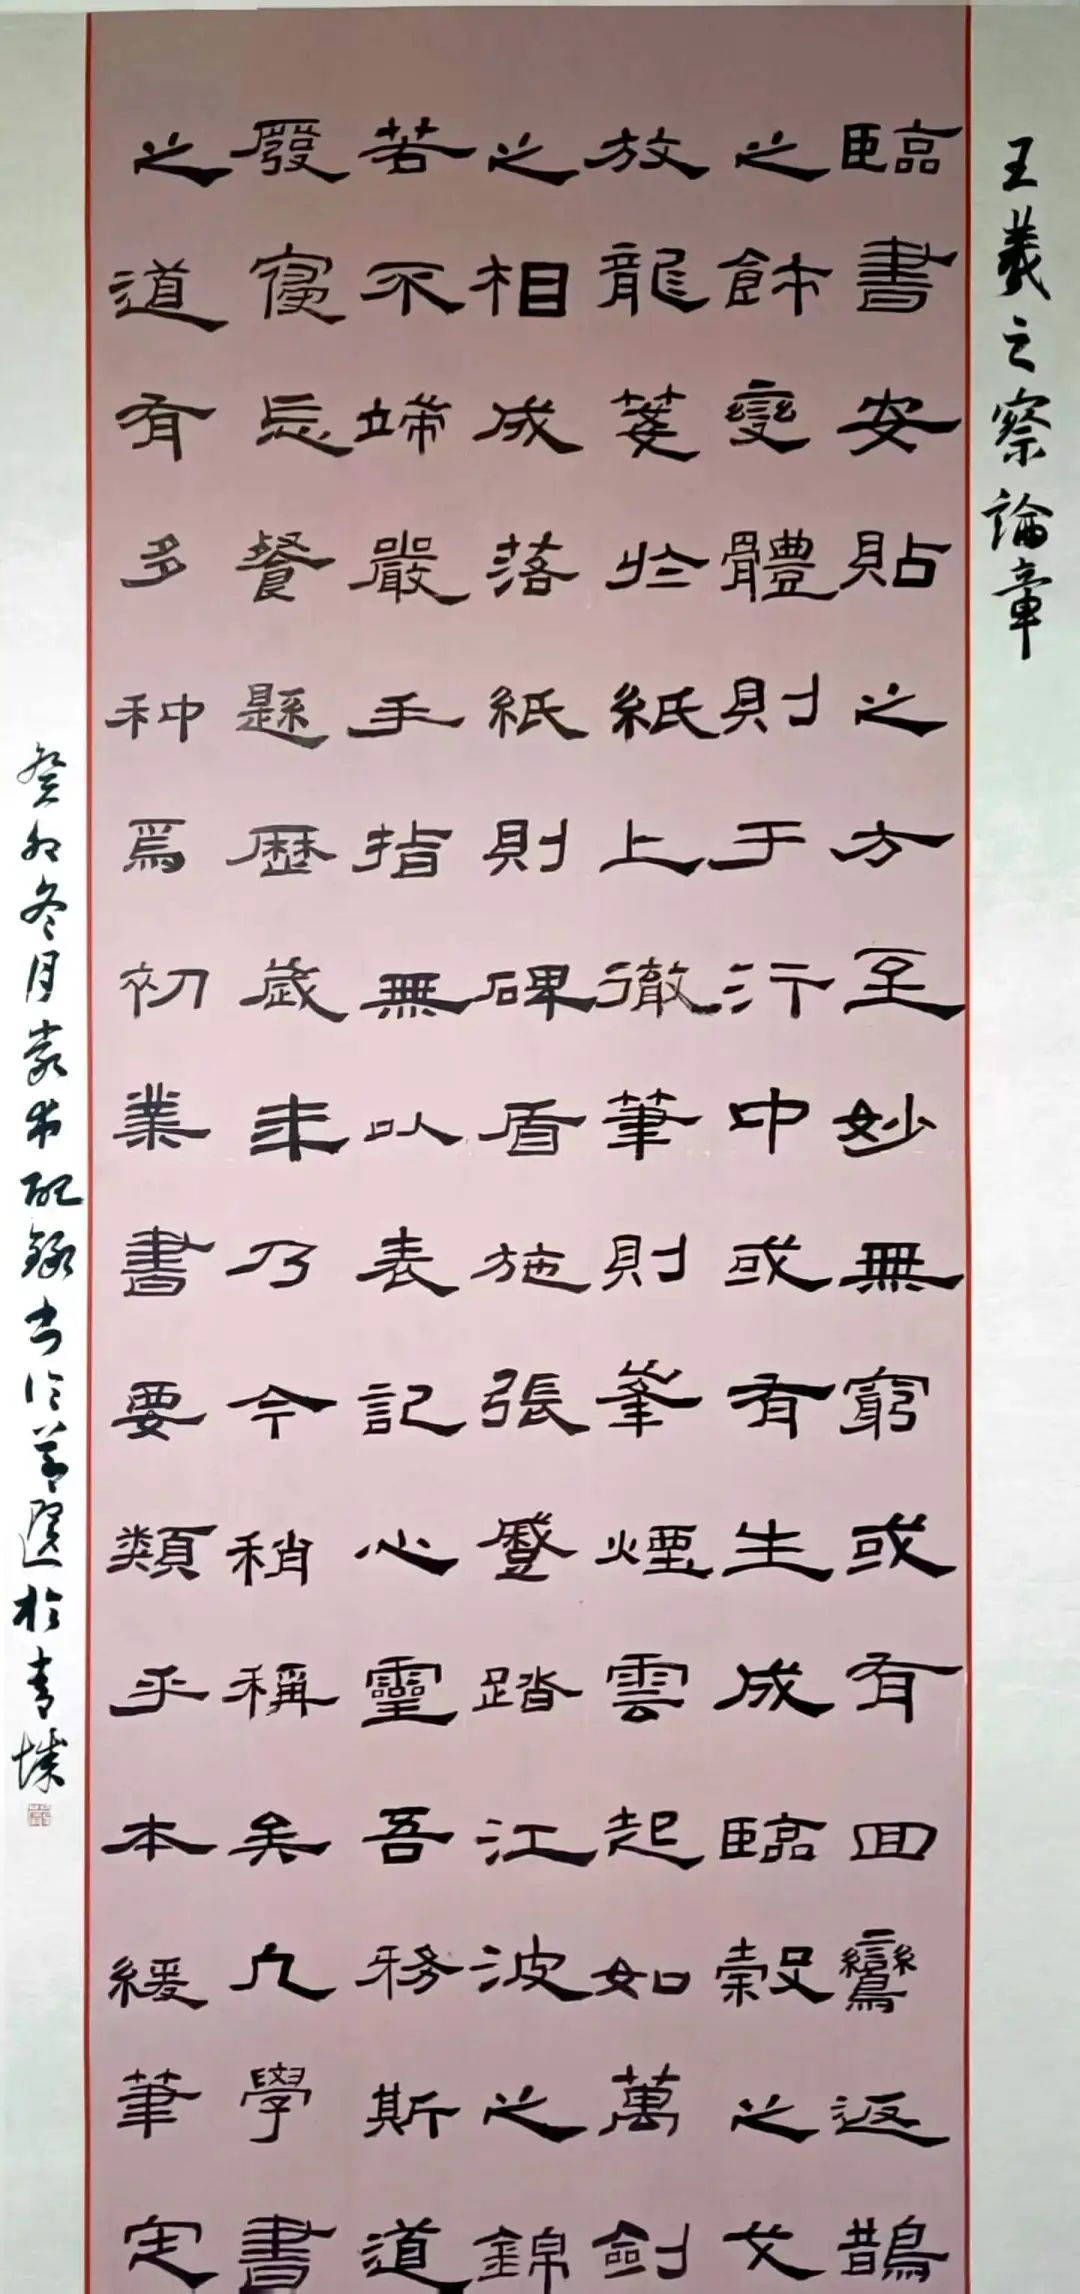 王羲之察論章
臨書安貼之方至妙無窮或有回鸞返鵲
之飾變體則于行中或有生成臨縠之文
放龍蛇於紙上徹筆則峯煙雲起如萬劍
之相成落紙則碑盾施張蹙踏江波之錦
若不端嚴手指無以表記心靈吾務斯道
廢寢忘餐懸歷歲年乃今稍稱矣凡學書
之道有多种焉初業書要類乎本緩筆定
癸卯冬月
於青城